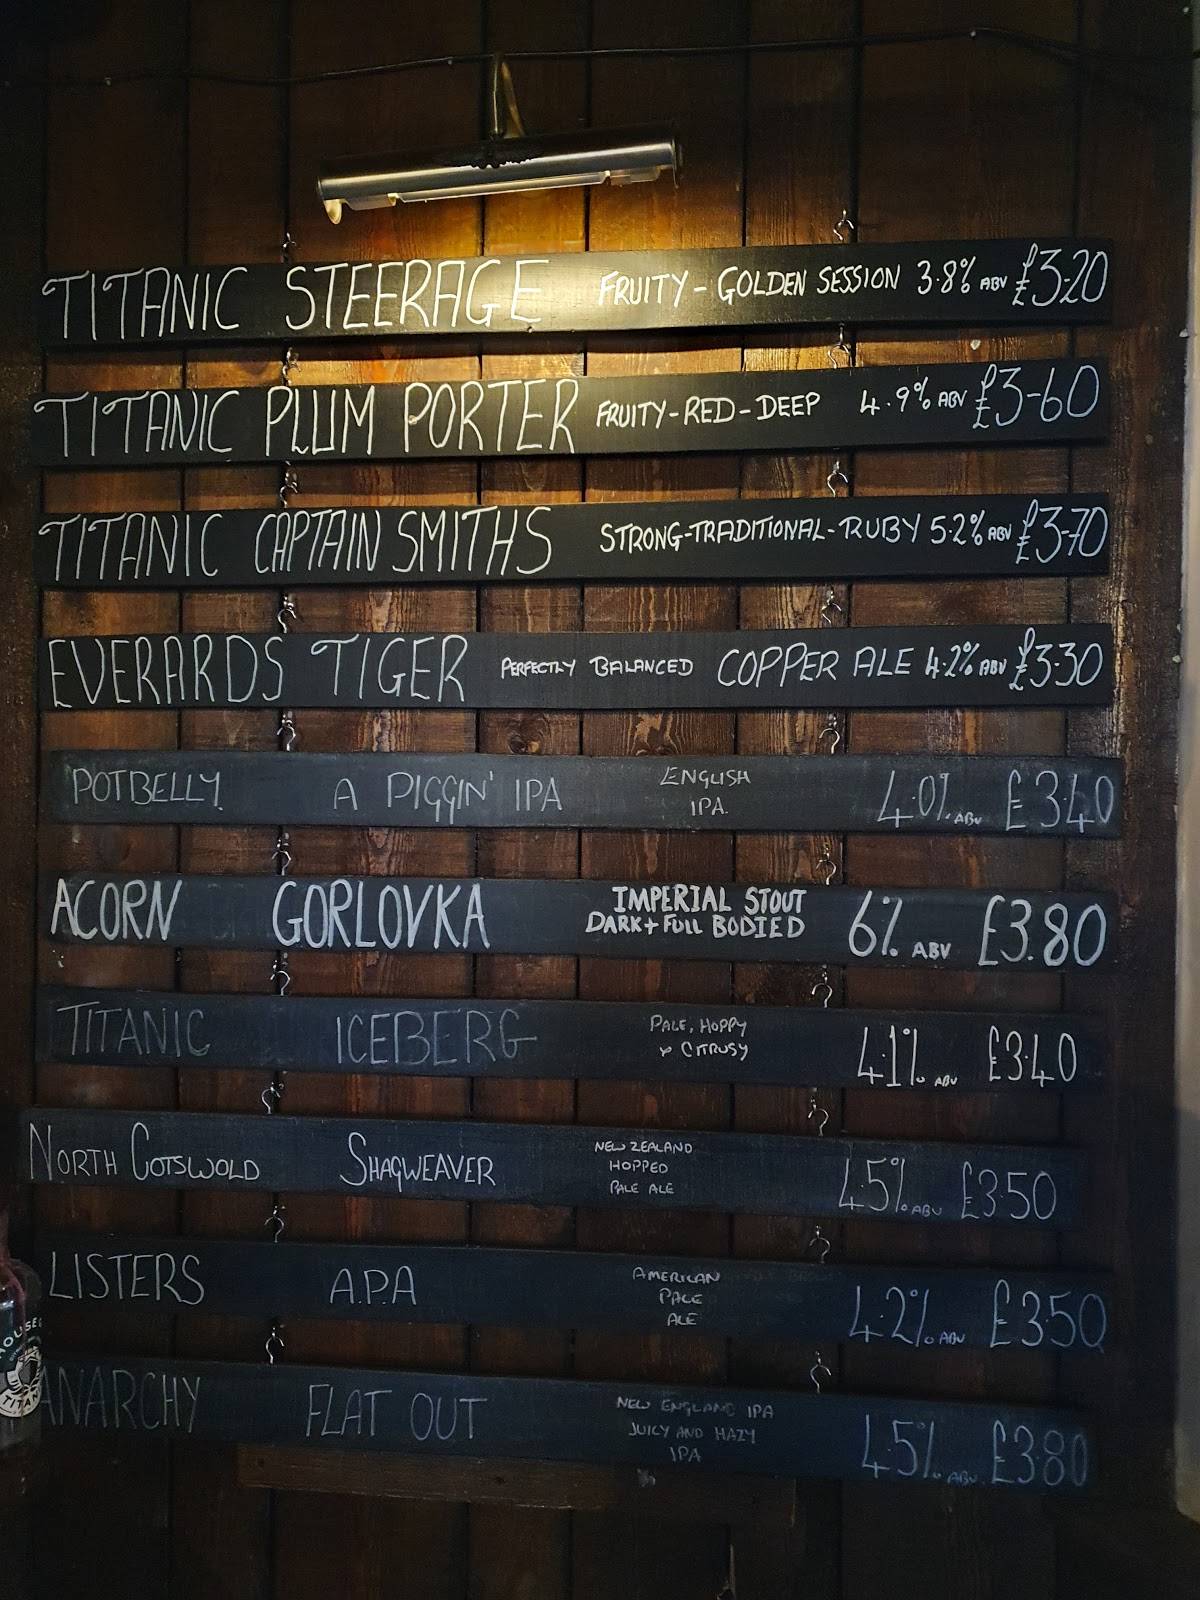 TITANIC STEERAGE FRUITY - GOLDEN SESSION 3.8% ABV £3.20
TITANIC PLUM PORTER FRUITY-RED-DEEP 4.9% ABV £3-60
TITANIC CAPTAIN SMITHS STRONG-TRADITIONAL-RUBY 5.2% ABV £3-70
EVERARDS TIGER PERFECTLY BALANCED COPPER ALE 4.2% ABV £3.30
POTBELLY A PIGGIN' IPA ENGLISH
IPA. 4.0% ABV £3.40
ACORN GORLOVKA IMPERIAL STOUT
DARK + FULL BODIED 6% ABV £3.80
TITANIC ICEBERG PALE, HOPPY
& CITRUSY 4.1% ABV £3.40
NORTH COTSWOLD SHAGWEAVER NEW ZEALAND
HOPPED
PALE ALE 4.5% ABV £3.50
LISTERS A.P.A AMERICAN
PALE
ALE 4.2% ABV £3.50
ANARCHY FLAT OUT NEW ENGLAND IPA
JUICY AND HAZY
IPA 4.5% ABV £3.80